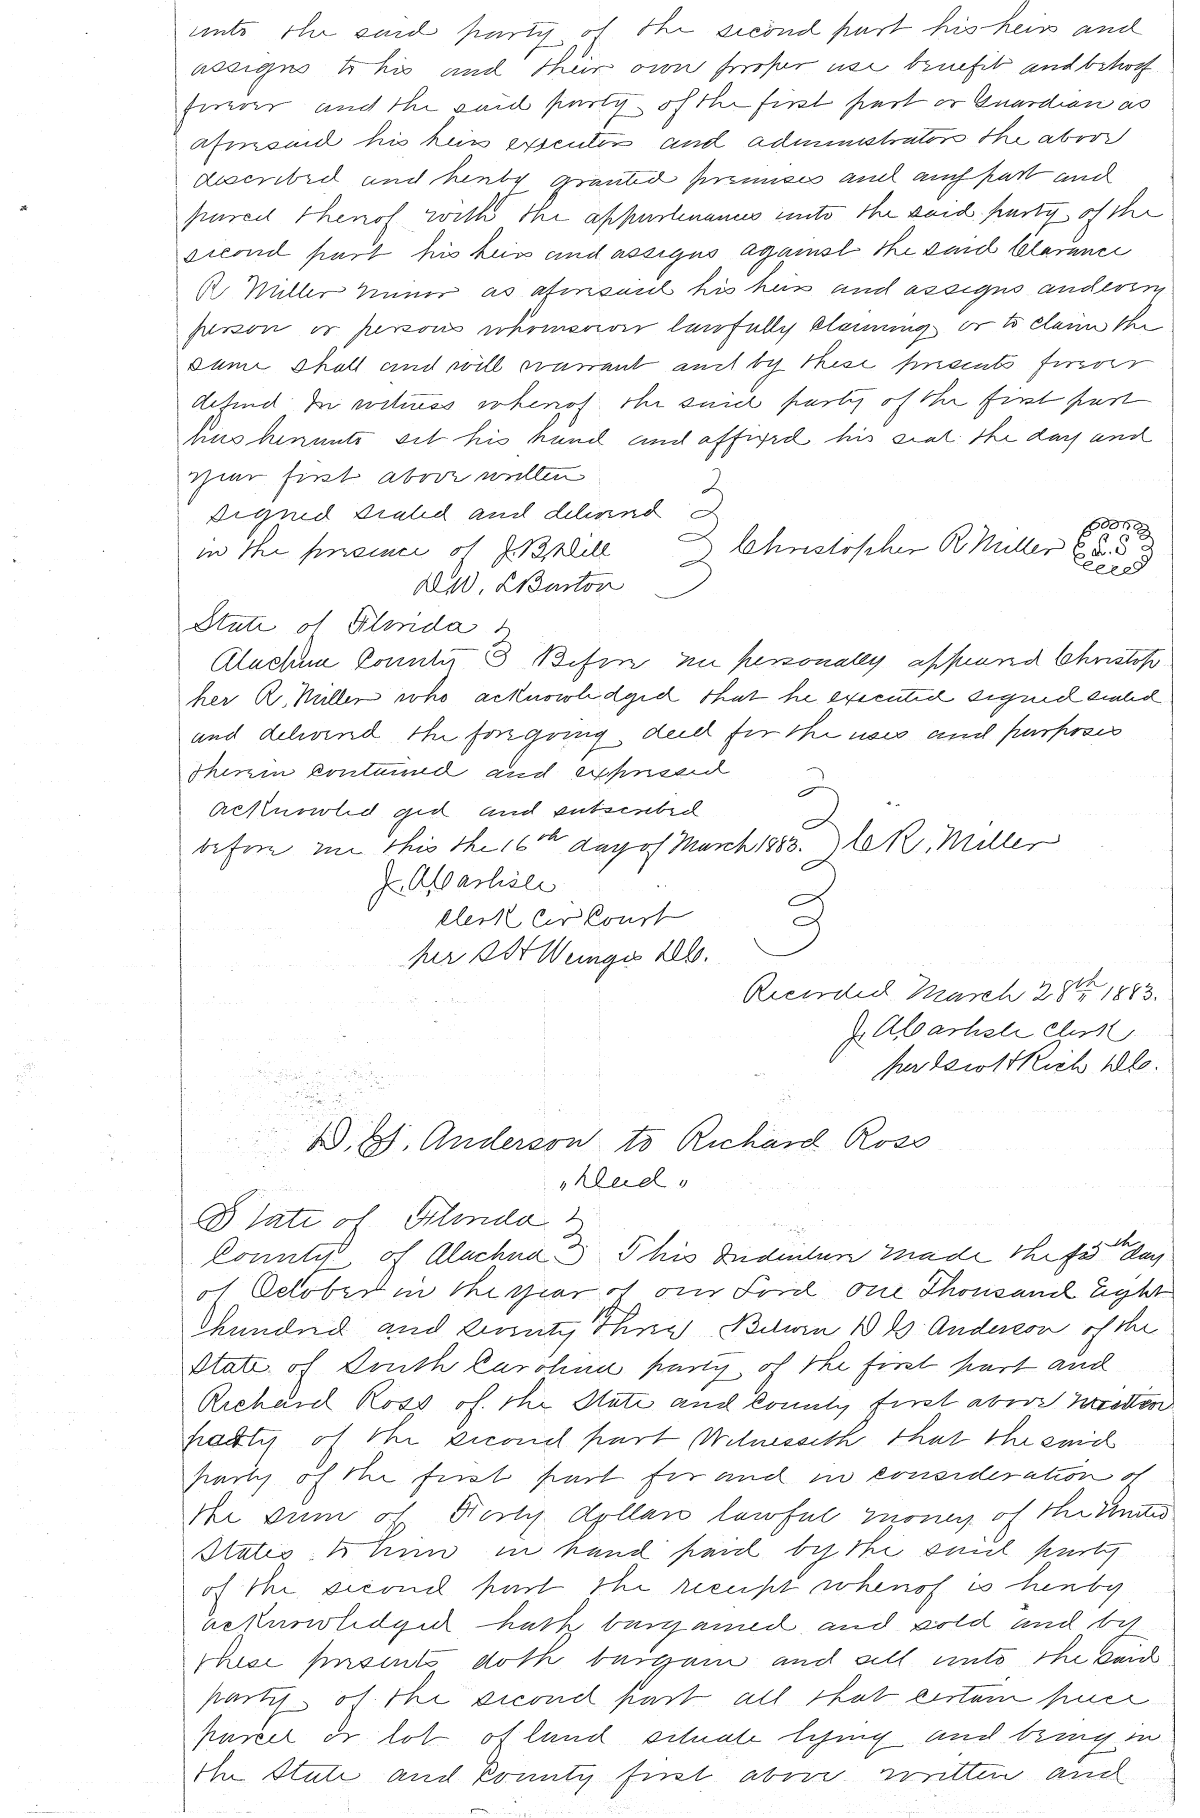 unto the said party of the second part his heirs and
assigns to his and their own proper use benefit and behoof
forever and the said party of the first part or Guardian as
aforesaid his heirs executors and administrators the above
described and hereby granted premises and any part and
parcel thereof with the appurtenances unto the said party of the
second part his heirs and assigns against the said Clarance
R Miller minor as aforesaid his heirs and assigns and every
person or persons whomsoever lawfully claiming or to claim the
same shall and will warrant and by these presents forever
defend In witness whereof the said party of the first part
has hereunto set his hand and affixed his seal the day and
year first above written
signed sealed and delivered
in the presence of J. B. Dell Christopher R Miller L.S
D.W. L Burton
State of Florida
Alachua County Before me personally appeared Christop
her R. Miller who acknowledged that he executed signed sealed
and delivered the foregoing deed for the uses and purposes
therein contained and expressed
acknowled ged and subscribed
before me this the 16th day of March 1883. C R. Miller
J. A Carlisle
Clerk Cir Court
per D.C.
Recorded March 28th 1883.
J. A Carlisle Clerk
per Rich D.C.
D. G. Anderson to Richard Ross
"Deed"
State of Florida
County of Alachua This Indenture made the 15th day
of October in the year of our Lord One Thousand Eight
hundred and seventy three Between D G Anderson of the
State of South Carolina party of the first part and
Richard Ross of the State and County first above written
party of the second part Witnesseth that the said
party of the first part for and in consideration of
the sum of Forty dollars lawful money of the United
States to him in hand paid by the said party
of the second part the receipt whereof is hereby
acknowledged hath bargained and sold and by
these presents doth bargain and sell unto the said
party of the second part all that certain piece
parcel or lot of land situate lying and being in
the State and County first above written and